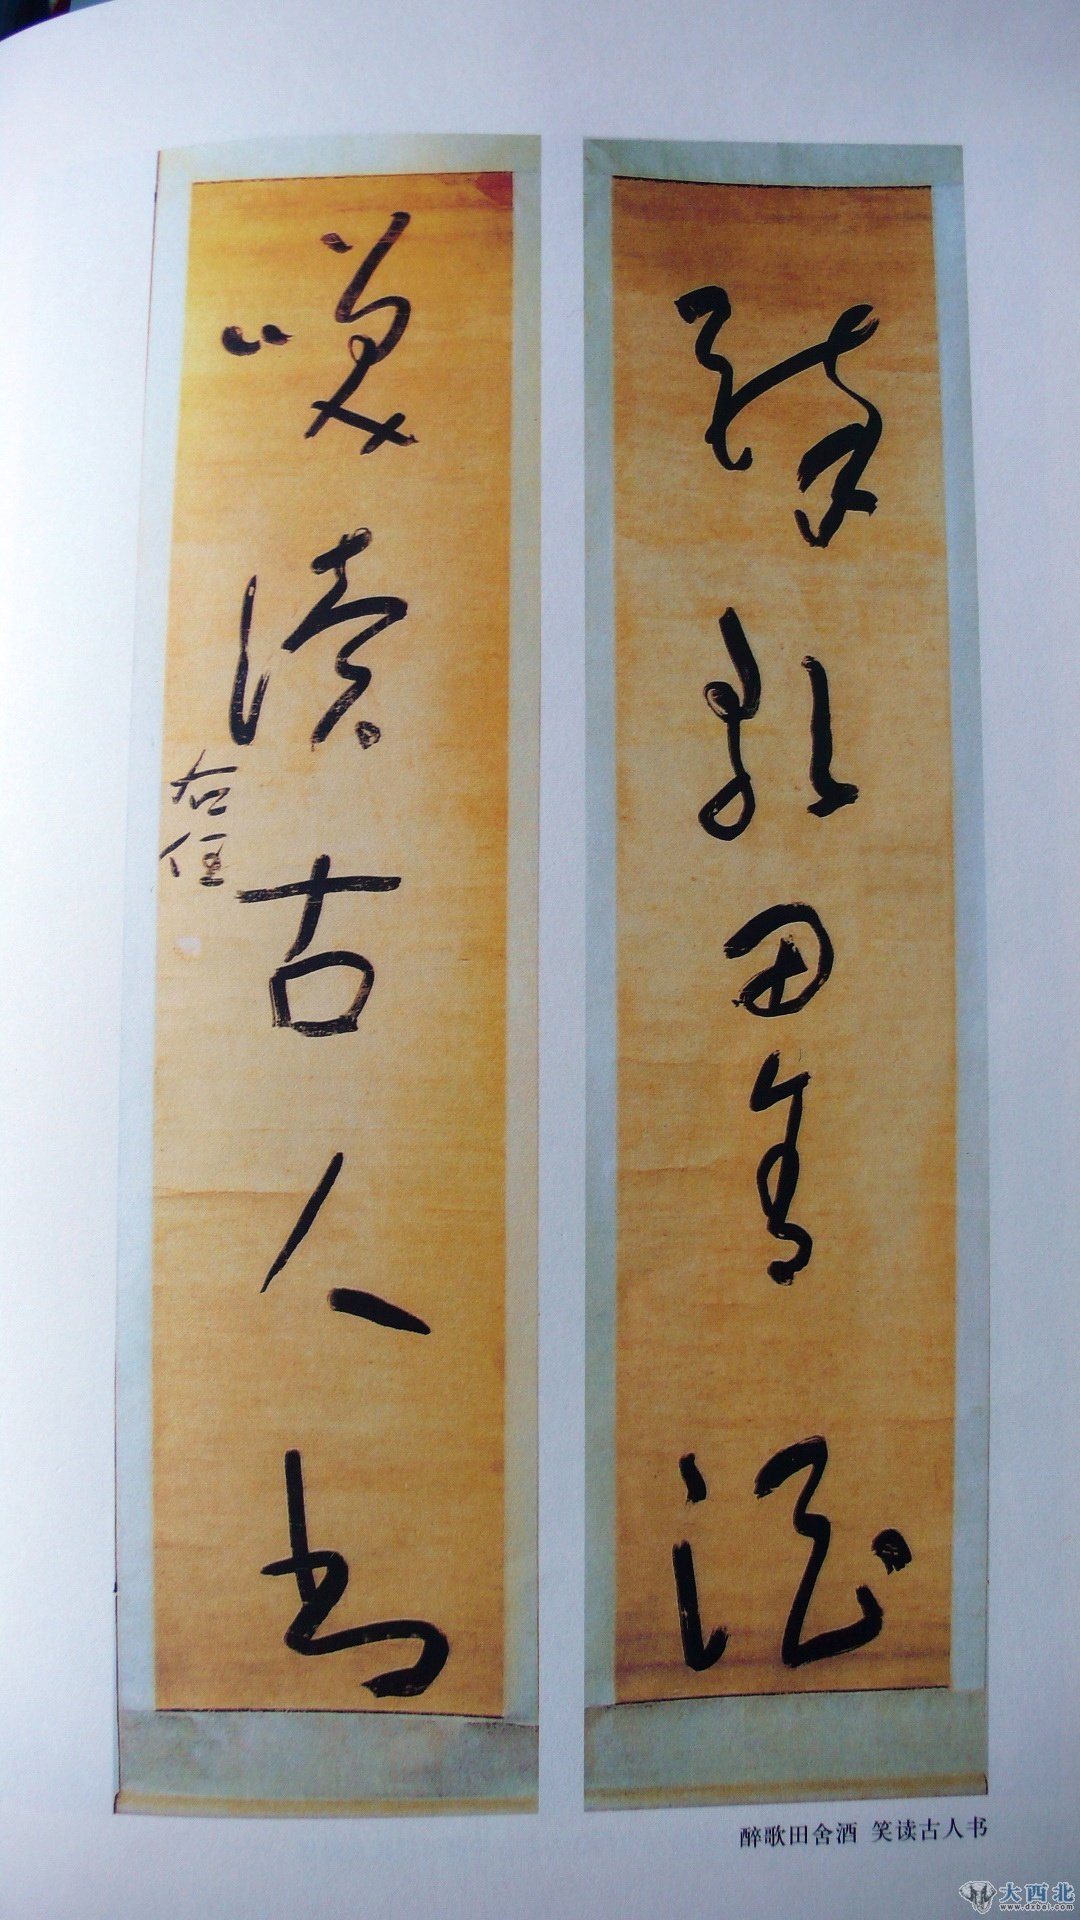 醉歌田舍酒
笑读古人书
右任
醉歌田舍酒 笑读古人书
大西北
www.dxbei.com